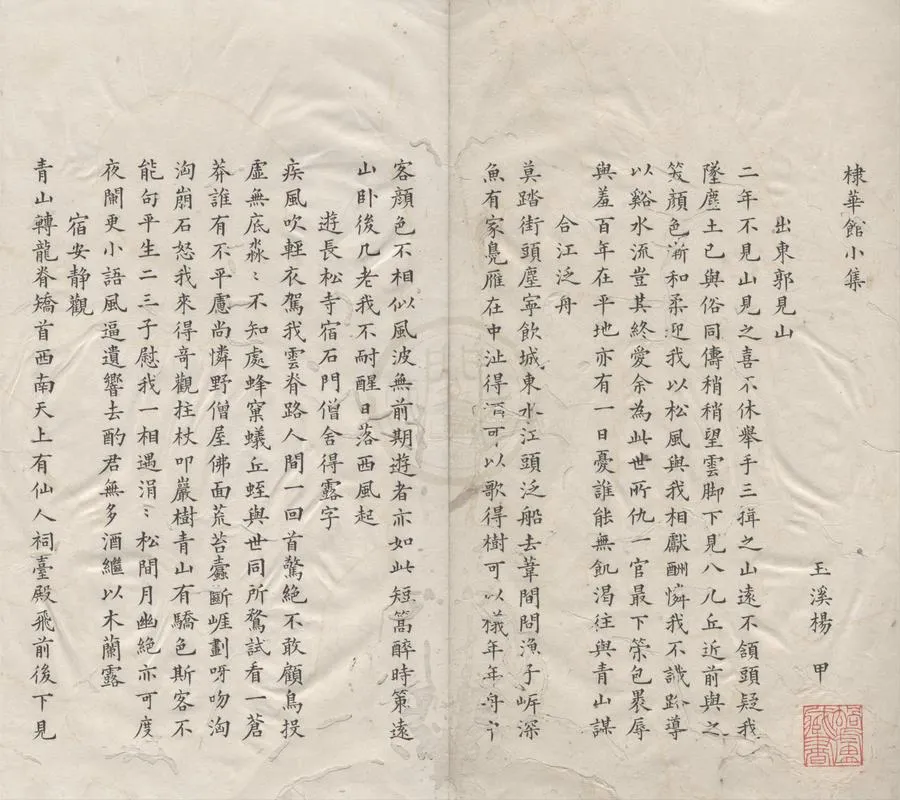 棣華館小集
玉溪楊　甲
出東郭見山
二年不見山見之喜不休舉手三揖之山遠不頷頭疑我
墜塵土已與俗同儔稍稍望雲脚下見八九丘近前與之
笑顏色漸和柔迎我以松風與我相獻酬憐我不識路導
以谿水流豈其終愛余為此世所仇一官最下策包裹辱
與羞百年在平地亦有一日憂誰能無飢渴往與青山謀
合江泛舟
莫踏街頭塵寧飲城東水江頭泛船去葦間問漁子岸深
魚有家鳧雁在中沚得酒可以歌得樹可以檥年年舟
客顏色不相似風波無前期遊者亦如此短篙醉時策遠
山卧後几老我不耐醒日落西風起
遊長松寺宿石門僧舍得露字
疾風吹輕衣駕我雲脊路人間一回首驚絕不敢顧鳥投
虛無底淼〻不知處蜂窠蟻丘蛭與世同所騖試看一蒼
莽誰有不平慮尚憐野僧屋佛面荒苔蠹斷崕劃呀吻洶
洶崩石怒我來得奇觀拄杖叩巖樹青山有驕色斯客不
能句平生二三子慰我一相遇涓〻松間月幽絕亦可度
夜闌更小語風逼遺響去酌君無多酒繼以木蘭露
宿安靜觀
青山轉龍脊矯首西南天上有仙人祠臺殿飛前後下見